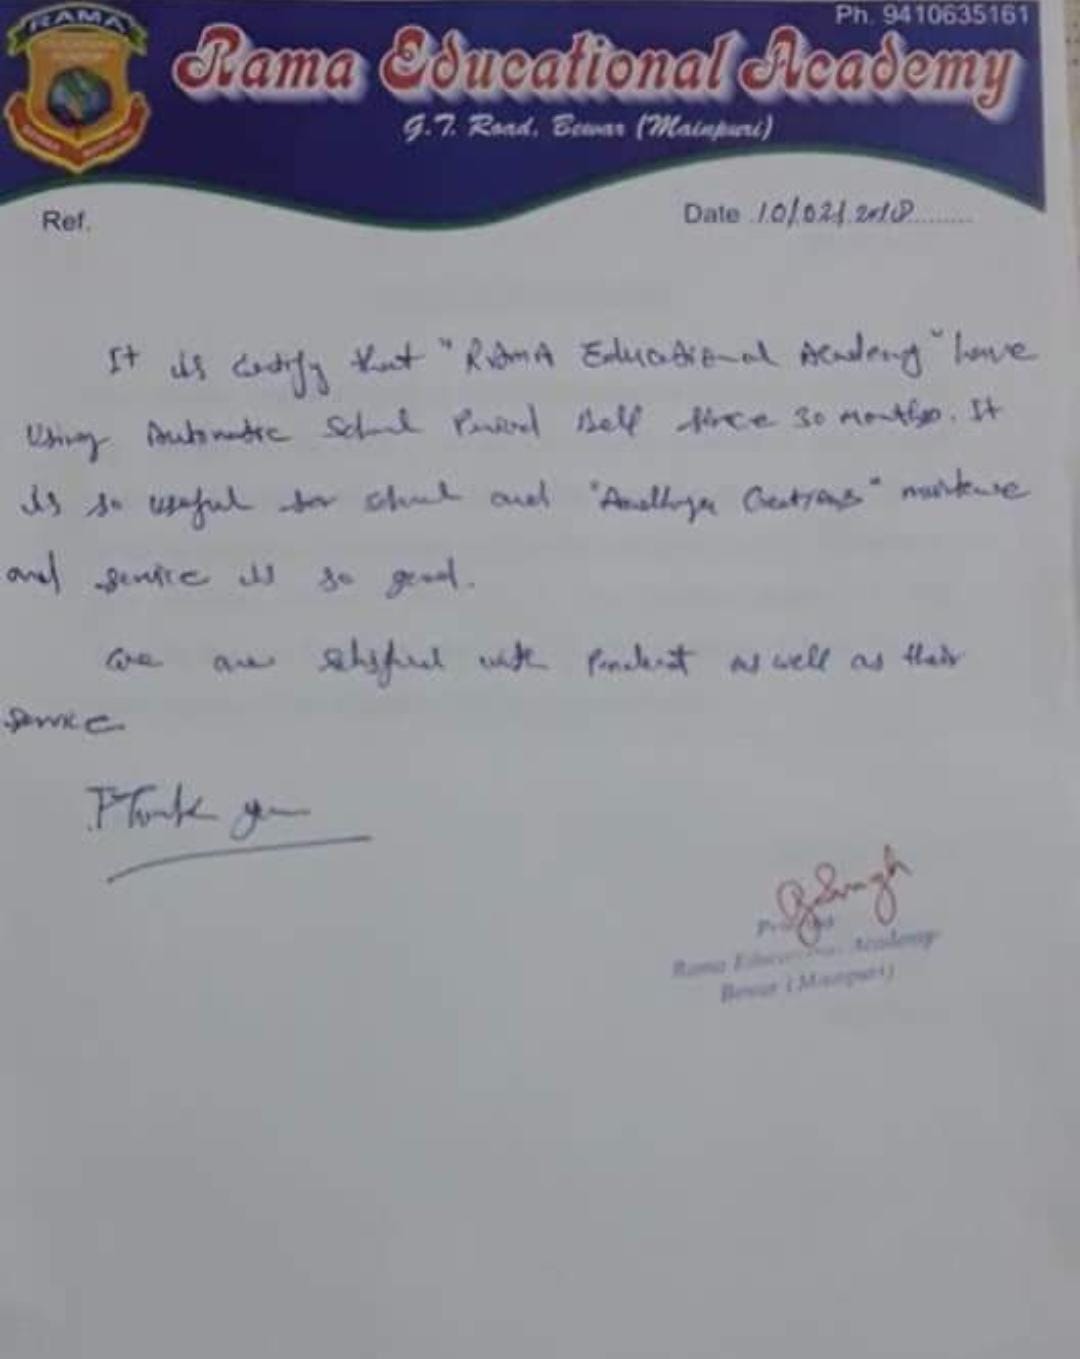 RAMA
Ph. 9410635161
Rama Educational Academy
G.T. Road, Bewar (Mainpuri)
Ref.
Date 10/02/2018
It is certify that "RAMA Educational Academy" have
Using Automatic School Period Bell since 30 months. It
is so useful for school and Creations"
and service is so good.
We are with Product as well as their
service
Thank you
Singh
Rama Academy
Bewar (Mainpuri)